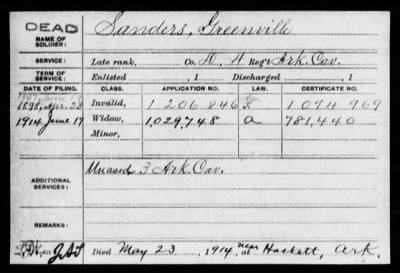 DEAD
NAME OF SOLDIER: Sanders, Greenville
SERVICE: Late rank, Co. D, 4 Reg't Ark. Cav.
TERM OF SERVICE: Enlisted , 1 Discharged , 1
DATE OF FILING. CLASS. APPLICATION NO. LAW. CERTIFICATE NO.
1898, Apr. 23 Invalid, 1206846 1074969
1914 June 17 Widow, 1029748 a 781,440
Minor,
ADDITIONAL SERVICES: Unassd 3 Ark. Cav.
REMARKS:
Died May 23, 1914, near at Hackett, Ark.